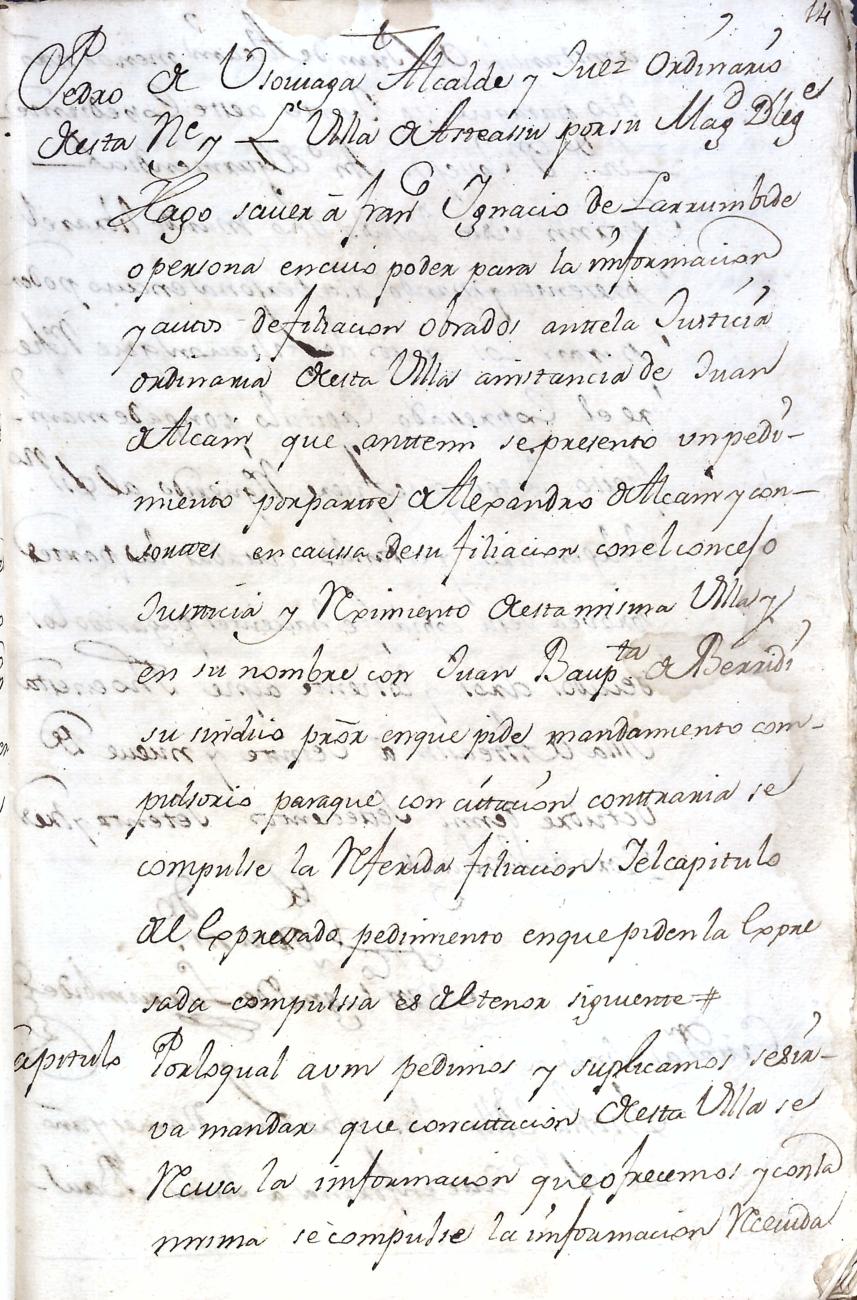 14
Pedro de Usoviaga Alcalde y Juez Ordinario
desta Ne y L Villa de Asteassu por su Magd Dlege
Hago saver â franco Ygnacio de Larrumbide
o persona en cuio poder para la informacion
y autos de filiacion obrados antte la Justicia
ordinaria desta Villa a instancia de Juan
de Alcain que anttemi se presento un pedi-
miento por partte de Alexandro de Alcain y con-
sorttes en caussa de su filiacion con el concejo
Justticia y Reximiento desta misma Villa y
en su nombre con Juan Baupta de Berridi
su sindiio prõr en que pide mandamiento com-
pulsorio para que con cittacion conttraria se
compulse la Referida filiacion Y el capitulo
del Expresado pedimiento en que piden la Expre
sada compulssa es del tenor siguiente #
Capitulo Por lo qual a vm pedimos y suplicamos se sir-
va mandar que con cittacion desta Villa se
Reciva la informacion que ofrecemos y con la
misma se compulse la informacion Recivida